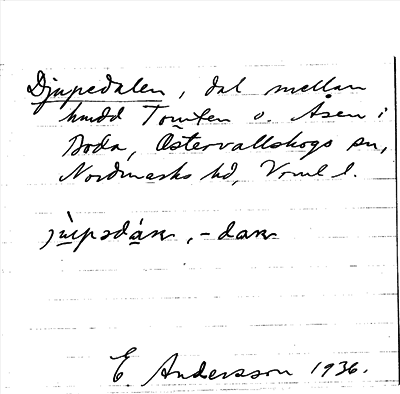 Djupedalen, dal mellan
hmdd Tomten o. Åsen i
Boda, Östervallskogs sn,
Nordmarks hd, Vrml l.
E. Andersson 1936.